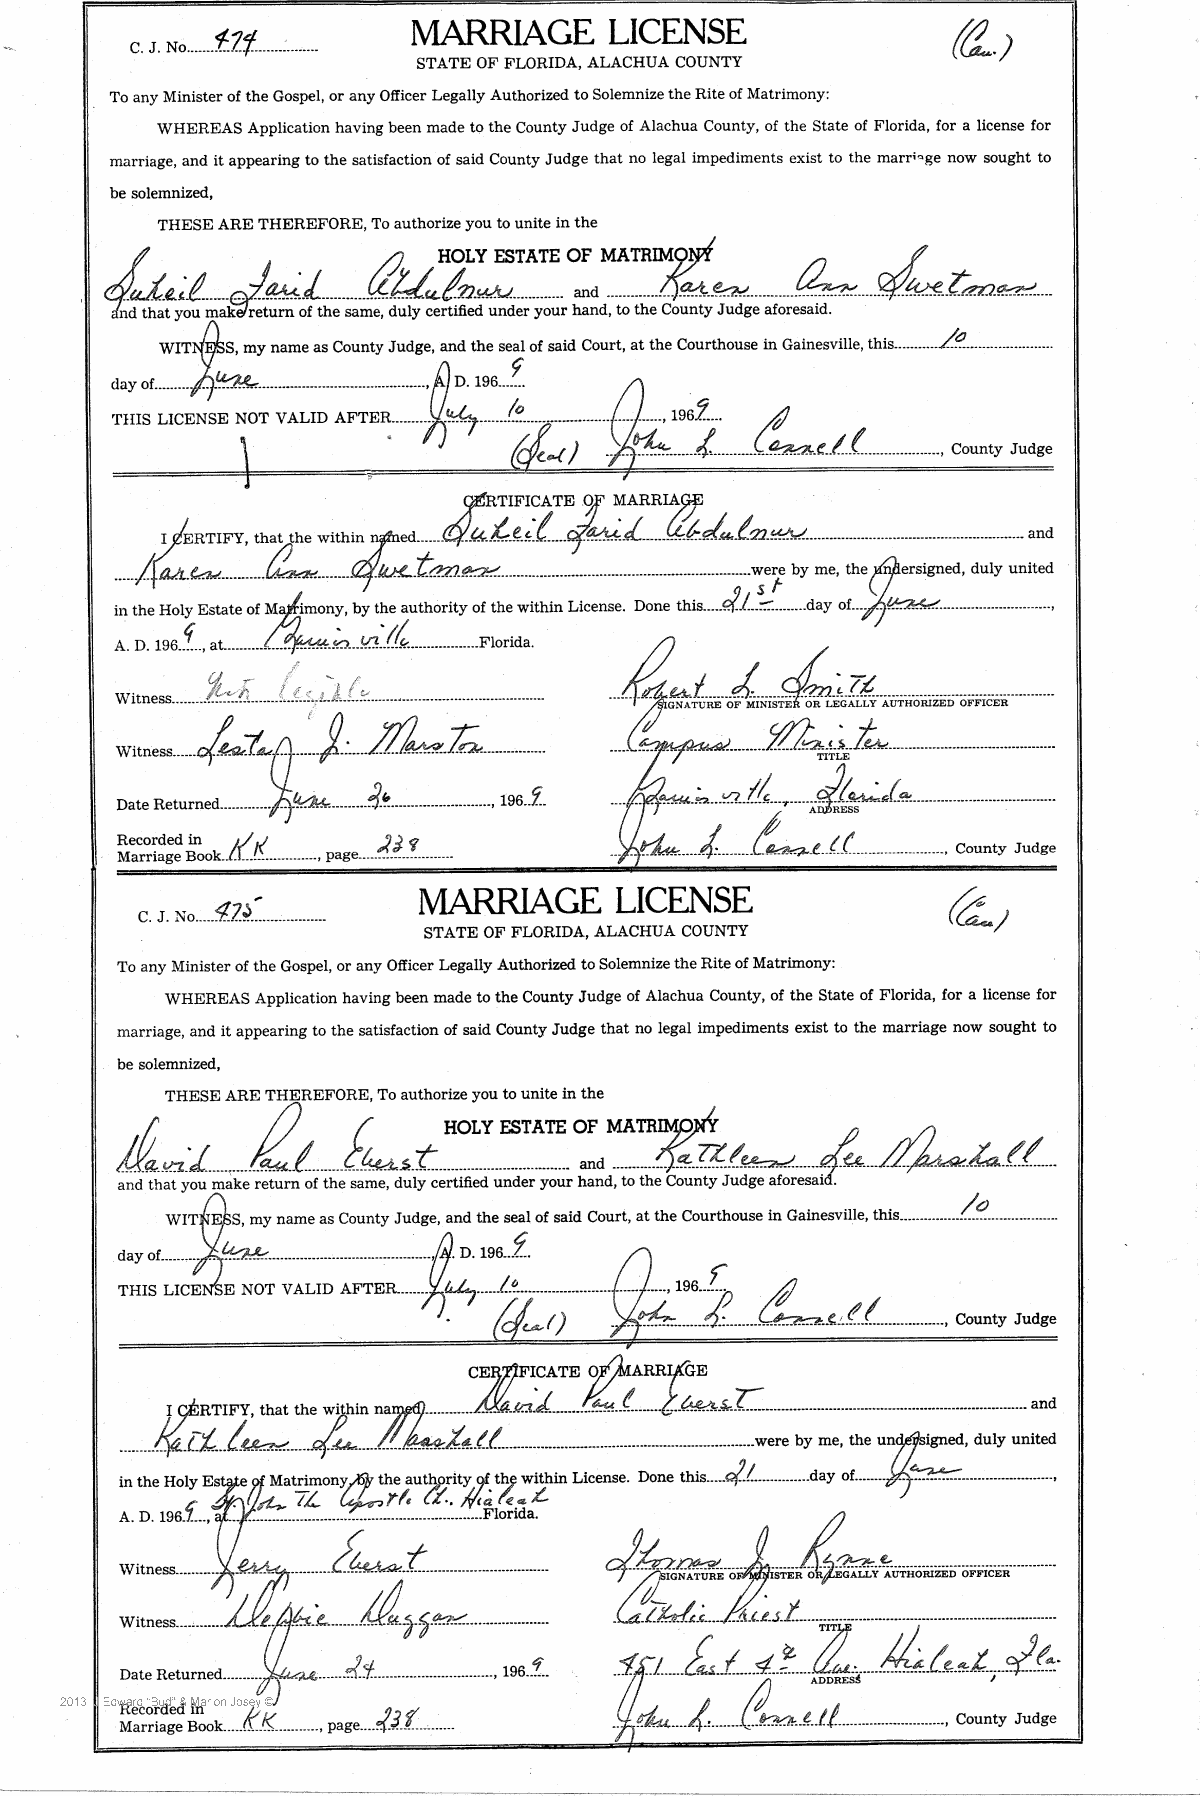 C. J. No. 474 MARRIAGE LICENSE (Cau.)
STATE OF FLORIDA, ALACHUA COUNTY
To any Minister of the Gospel, or any Officer Legally Authorized to Solemnize the Rite of Matrimony:
WHEREAS Application having been made to the County Judge of Alachua County, of the State of Florida, for a license for
marriage, and it appearing to the satisfaction of said County Judge that no legal impediments exist to the marriage now sought to
be solemnized,
THESE ARE THEREFORE, To authorize you to unite in the
HOLY ESTATE OF MATRIMONY
Suheil Farid Abdulnur and Karen Ann Swetman
and that you make return of the same, duly certified under your hand, to the County Judge aforesaid.
WITNESS, my name as County Judge, and the seal of said Court, at the Courthouse in Gainesville, this 10
day of June, A. D. 1969
THIS LICENSE NOT VALID AFTER July 10, 1969
(Seal) John L. Connell, County Judge
CERTIFICATE OF MARRIAGE
I CERTIFY, that the within named Suheil Farid Abdulnur and
Karen Ann Swetman were by me, the undersigned, duly united
in the Holy Estate of Matrimony, by the authority of the within License. Done this 21st day of June,
A. D. 1969, at Gainisville Florida.
Witness Not legible Robert L. Smith
SIGNATURE OF MINISTER OR LEGALLY AUTHORIZED OFFICER
Witness J. Marston Campus Minister
TITLE
Date Returned June 26, 1969 Gainisville, Florida
ADDRESS
Recorded in
Marriage Book KK, page 238 John L. Connell, County Judge
C. J. No. 475 MARRIAGE LICENSE (Cau)
STATE OF FLORIDA, ALACHUA COUNTY
To any Minister of the Gospel, or any Officer Legally Authorized to Solemnize the Rite of Matrimony:
WHEREAS Application having been made to the County Judge of Alachua County, of the State of Florida, for a license for
marriage, and it appearing to the satisfaction of said County Judge that no legal impediments exist to the marriage now sought to
be solemnized,
THESE ARE THEREFORE, To authorize you to unite in the
HOLY ESTATE OF MATRIMONY
David Paul Eberst and Kathleen Lee Marshall
and that you make return of the same, duly certified under your hand, to the County Judge aforesaid.
WITNESS, my name as County Judge, and the seal of said Court, at the Courthouse in Gainesville, this 10
day of June, A. D. 1969.
THIS LICENSE NOT VALID AFTER July 10, 1969
(Seal) John L. Connell, County Judge
CERTIFICATE OF MARRIAGE
I CERTIFY, that the within named David Paul Eberst and
Kathleen Lee Marshall were by me, the undersigned, duly united
in the Holy Estate of Matrimony, by the authority of the within License. Done this 21 day of June,
A. D. 1969, at St. John The Apostle Ch., Hialeah Florida.
Witness Jerry Eberst Thomas J. Rynne
SIGNATURE OF MINISTER OR LEGALLY AUTHORIZED OFFICER
Witness Debbie Duggan Catholic Priest
TITLE
Date Returned June 24, 1969 451 East 4th Ave. Hialeah, Fla.
ADDRESS
2013 Edward "Bud" & Marion Josey ©
Recorded in
Marriage Book KK, page 238 John L. Connell, County Judge